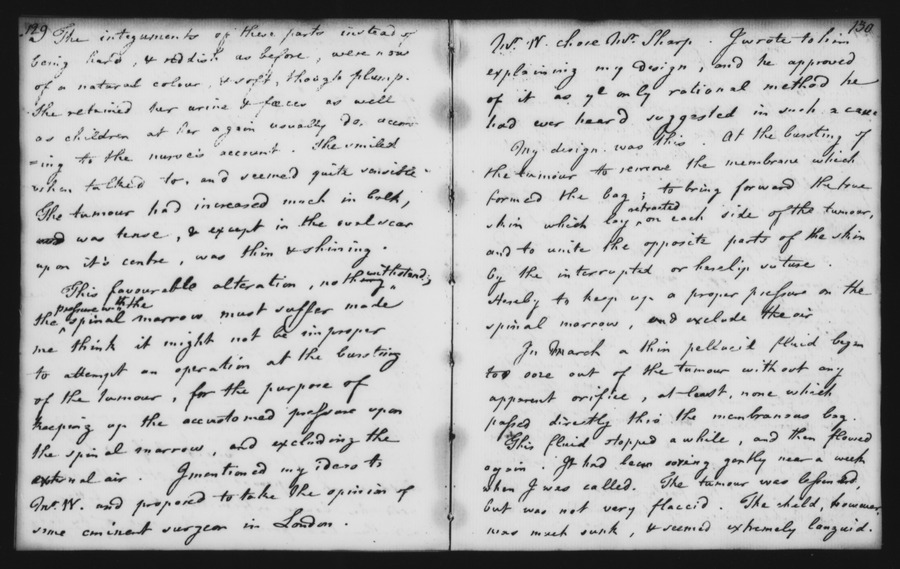 129
The integuments of these parts instead of
being hard, & reddish as before, were now
of a natural colour, & soft, though plump.
She retained her urine & fæces as well
as children at her age usually do, accord
=ing to the nurse's account. She smiled
when talked to, and seemed quite sensible.
The tumour had increased much in bulk,
was tense, & except in the oval scar
upon it's centre, was thin & shining.
This favourable alteration, nothwithstand;
the pressure with the spinal marrow must suffer made
me think it might not be improper
to attempt an operation at the bursting
of the tumour, for the purpose of
keeping up the accustomed pressure upon
the spinal marrow, and excluding the
external air. I mentioned my ideas to
Mr. W. and proposed to take the opinion of
some eminent surgeon in London.
130
Mr. W. chose Mr. Sharp. I wrote to him
explaining my design, and he approved
of it as ye only rational method he
had ever heard suggested in such a case
My design was this. At the bursting of
the tumour to remove the membrane which
formed the bag; to bring forward the true
skin which lay retracted on each side of the tumour,
and to unite the opposite parts of the skin
by the interrupted or harelip suture.
thereby to keep up a proper pressure on the
spinal marrow, and exclude the air
In March a thin pellucid fluid began
to ooze out of the tumour without any
apparent orifice, at least, none which
passed directly thro the membranous bag.
This fluid stopped awhile, and then flowed
again. It had been oozing gently near a week
when I was called. The tumour was lessened,
but was not very flaccid. The child, however,
was much sunk, & seemed extremely languid.